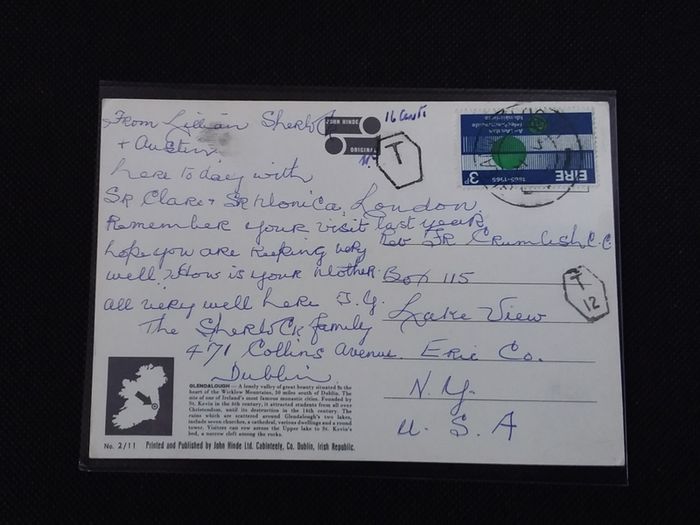 From Lillian Sherlock
+ Austin
here today with
Sr Clare + Sr Monica, London.
Remember your visit last year,
hope you are keeping very
well. How is your Mother.
all very well here T.G.
The Sherlock family
471 Collins Avenue.
Dublin
JOHN HINDE
ORIGINAL
16 Cents
T
ÉIRE
3p
1865-1965
Rev Fr Crumlish, C.C
Box 115
Lake View
Erie Co.
N.Y.
U.S.A
T
12
GLENDALOUGH — A lonely valley of great beauty situated in the
heart of the Wicklow Mountains, 30 miles south of Dublin. The
site of one of Ireland's most famous monastic cities. Founded by
St. Kevin in the 6th century, it attracted students from all over
Christendom, until its destruction in the 14th century. The
ruins which are scattered around Glendalough's two lakes,
include seven churches, a cathedral, various dwellings and a round
tower. Visitors can row across the Upper lake to St. Kevin's
bed, a narrow cleft among the rocks.
No. 2/11 Printed and Published by John Hinde Ltd. Cabinteely, Co. Dublin, Irish Republic.